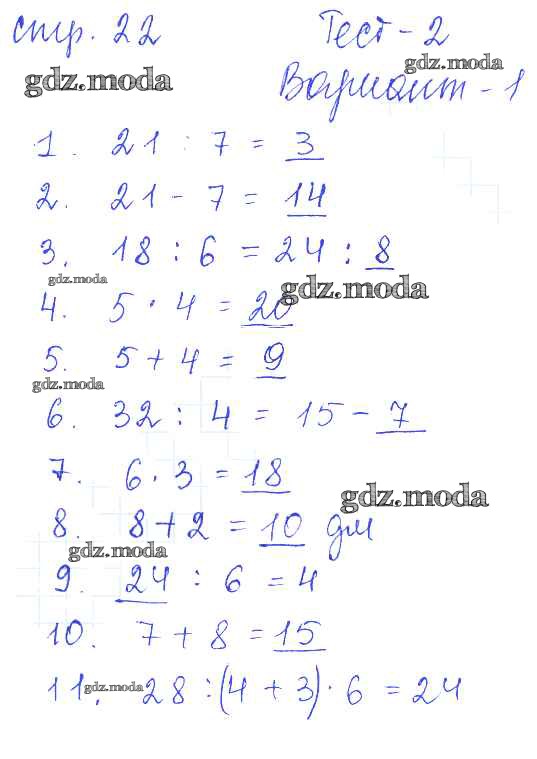 стр. 22 Тест-2
gdz.moda gdz.moda
Вариант-1
1. 21 : 7 = 3
2. 21 - 7 = 14
3. 18 : 6 = 24 : 8
gdz.moda gdz.moda
4. 5 · 4 = 20
5. 5 + 4 = 9
gdz.moda
6. 32 : 4 = 15 - 7
7. 6 · 3 = 18
gdz.moda
8. 8 + 2 = 10 дм
gdz.moda
9. 24 : 6 = 4
10. 7 + 8 = 15
11. gdz.moda 28 : (4 + 3) · 6 = 24